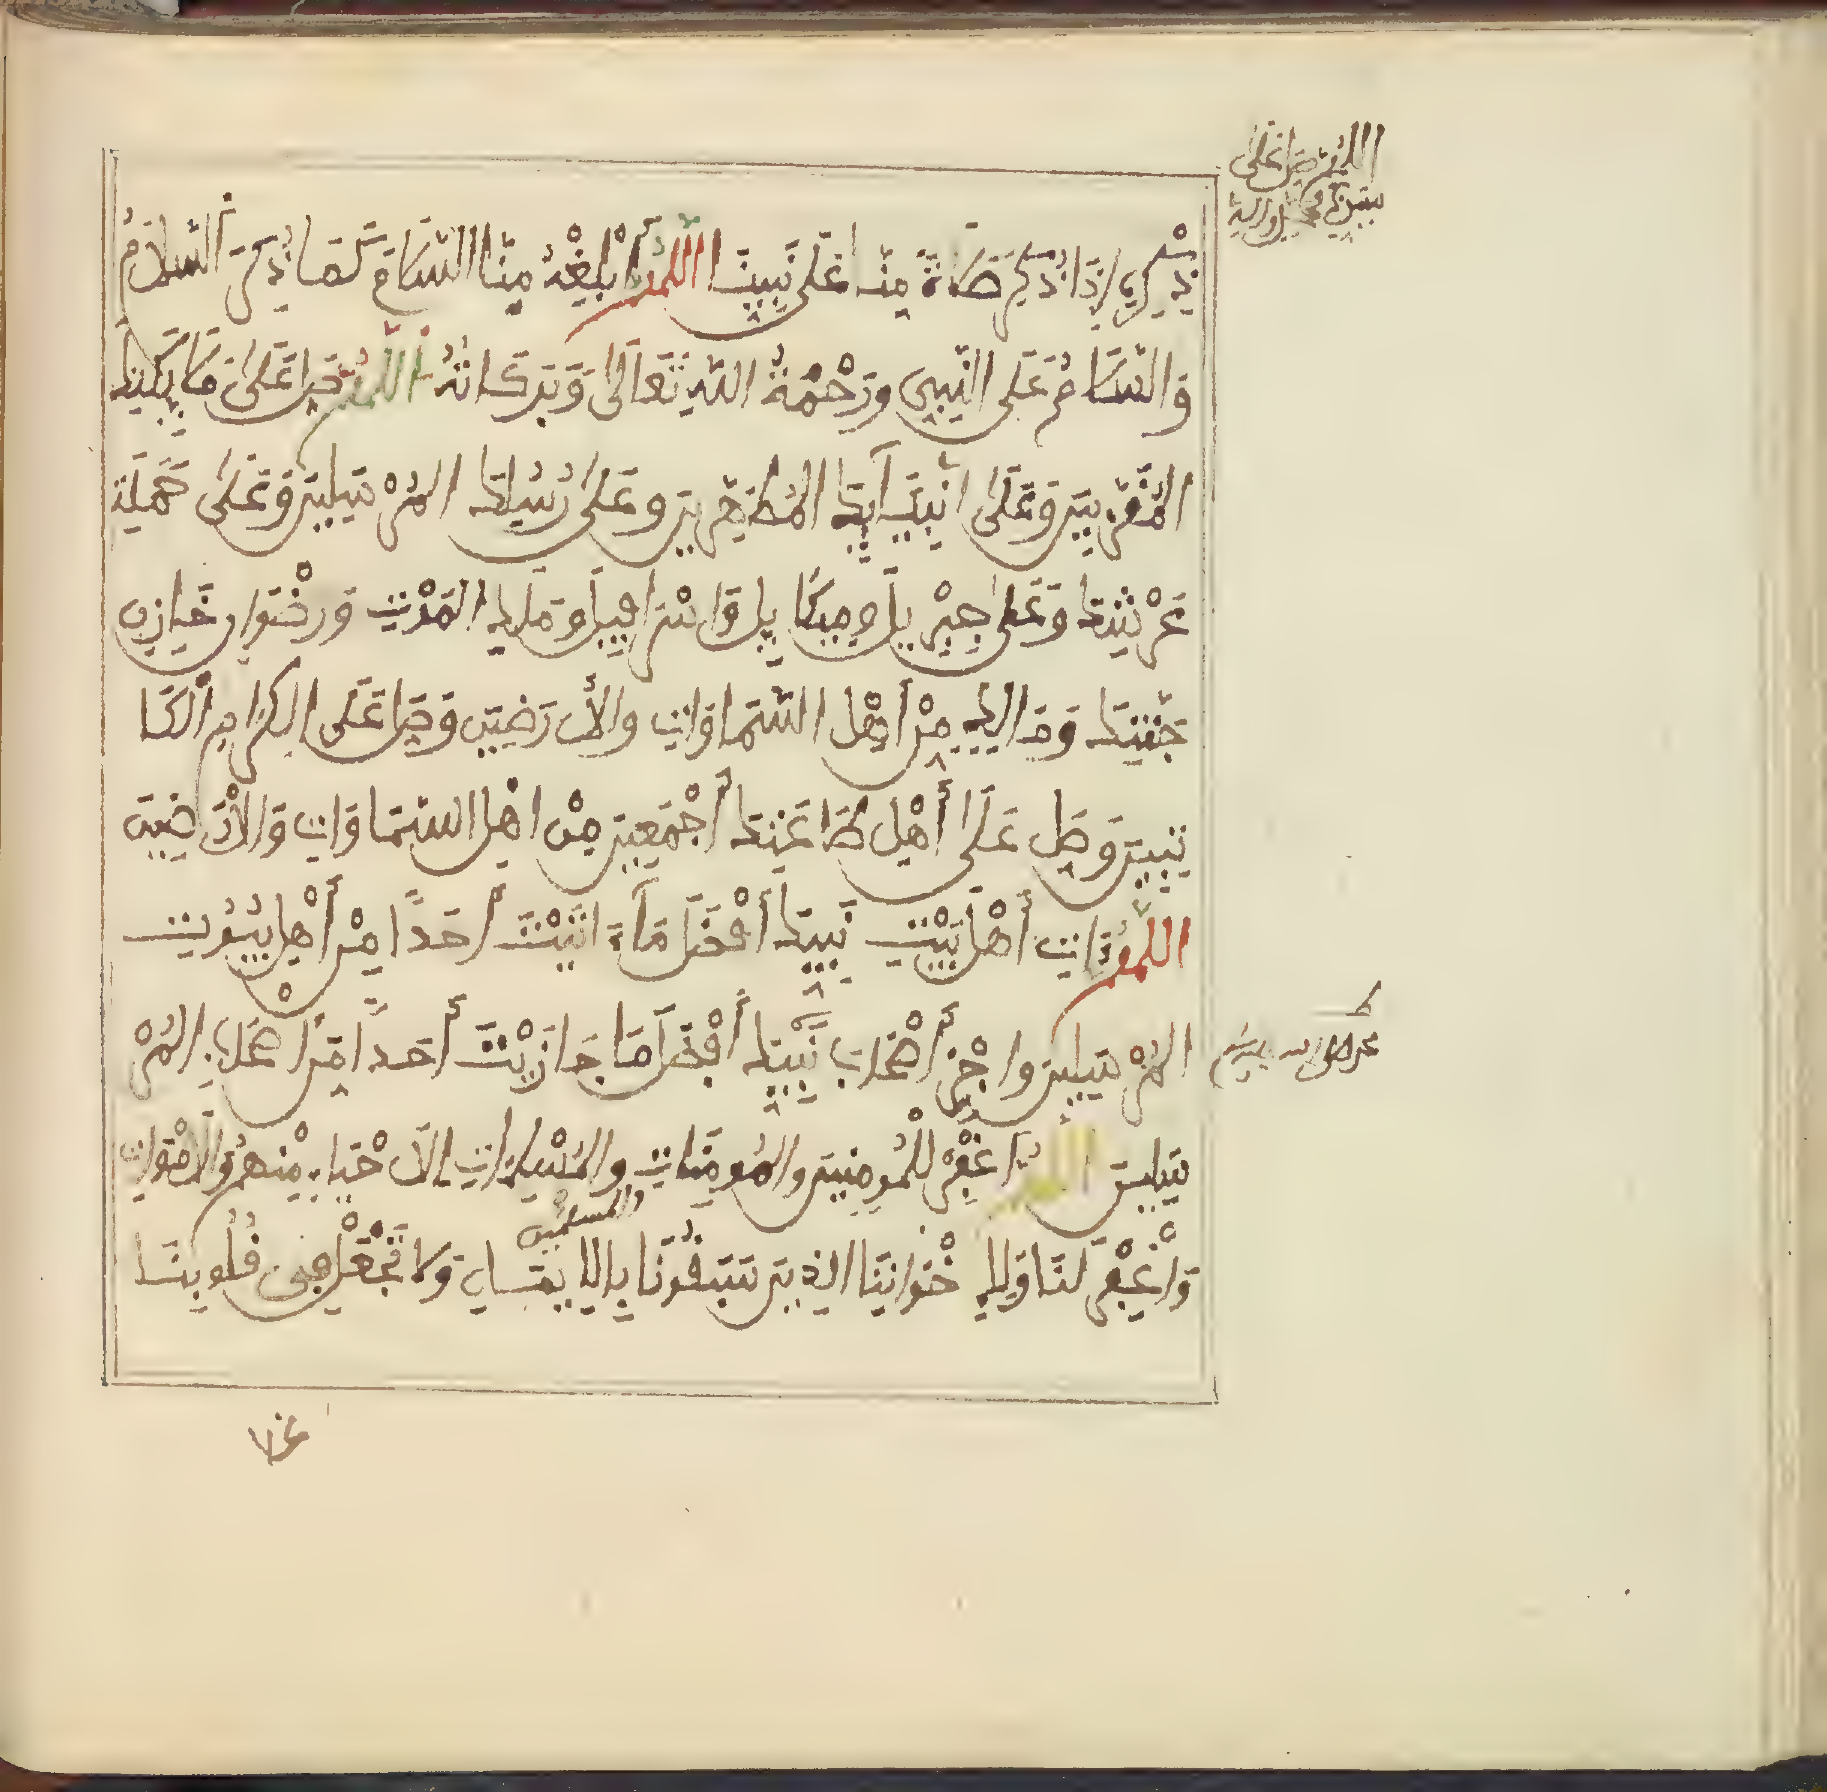 اللهم صل على
ذِكْرِهِ إِذَا ذُكِرَ صَلَاةً مِنَّا عَلَى نَبِيِّنَا اللَّهُمَّ أَبْلِغْهُ مِنَّا السَّلَامَ كَمَا ذُكِرَ السَّلَامُ
وَالسَّلَامُ عَلَى النَّبِيِّ وَرَحْمَةُ اللَّهِ تَعَالَى وَبَرَكَاتُهُ اللَّهُمَّ صَلِّ عَلَى مَلَائِكَتِكَ
الْمُقَرَّبِينَ وَعَلَى أَنْبِيَائِكَ الْمُطَهَّرِينَ وَعَلَى رُسُلِكَ الْمُرْسَلِينَ وَعَلَى حَمَلَةِ
عَرْشِكَ وَعَلَى جِبْرِيلَ وَمِيكَائِيلَ وَإِسْرَافِيلَ وَمَلَكِ الْمَوْتِ وَرِضْوَانَ خَازِنِ
جَنَّتِكَ وَمَالِكٍ مِنْ أَهْلِ السَّمَاوَاتِ وَالْأَرَضِينَ وَصَلِّ عَلَى الْكِرَامِ الْكَا
تِبِينَ وَصَلِّ عَلَى أَهْلِ طَاعَتِكَ أَجْمَعِينَ مِنْ أَهْلِ السَّمَاوَاتِ وَالْأَرَضِينَ
اللَّهُمَّ ءَاتِ أَهْلَ بَيْتِ نَبِيِّكَ أَفْضَلَ مَا ءَاتَيْتَ أَحَدًا مِنْ أَهْلِ بُيُوتِ
الْمُرْسَلِينَ وَاجْزِ أَصْحَابَ نَبِيِّكَ أَفْضَلَ مَا جَازَيْتَ أَحَدًا مِنْ أَصْحَابِ الْمُرْ
سَلِينَ اللَّهُمَّ اغْفِرْ لِلْمُومِنِينَ وَالْمُومِنَاتِ وَالْمُسْلِمَاتِ الْأَحْيَاءِ مِنْهُمْ وَالْأَمْوَاتِ
والمسلمين
وَاغْفِرْ لَنَا وَلِإِخْوَانِنَا الَّذِينَ سَبَقُونَا بِالْإِيمَانِ وَلَا تَجْعَلْ فِي قُلُوبِنَا
غلا